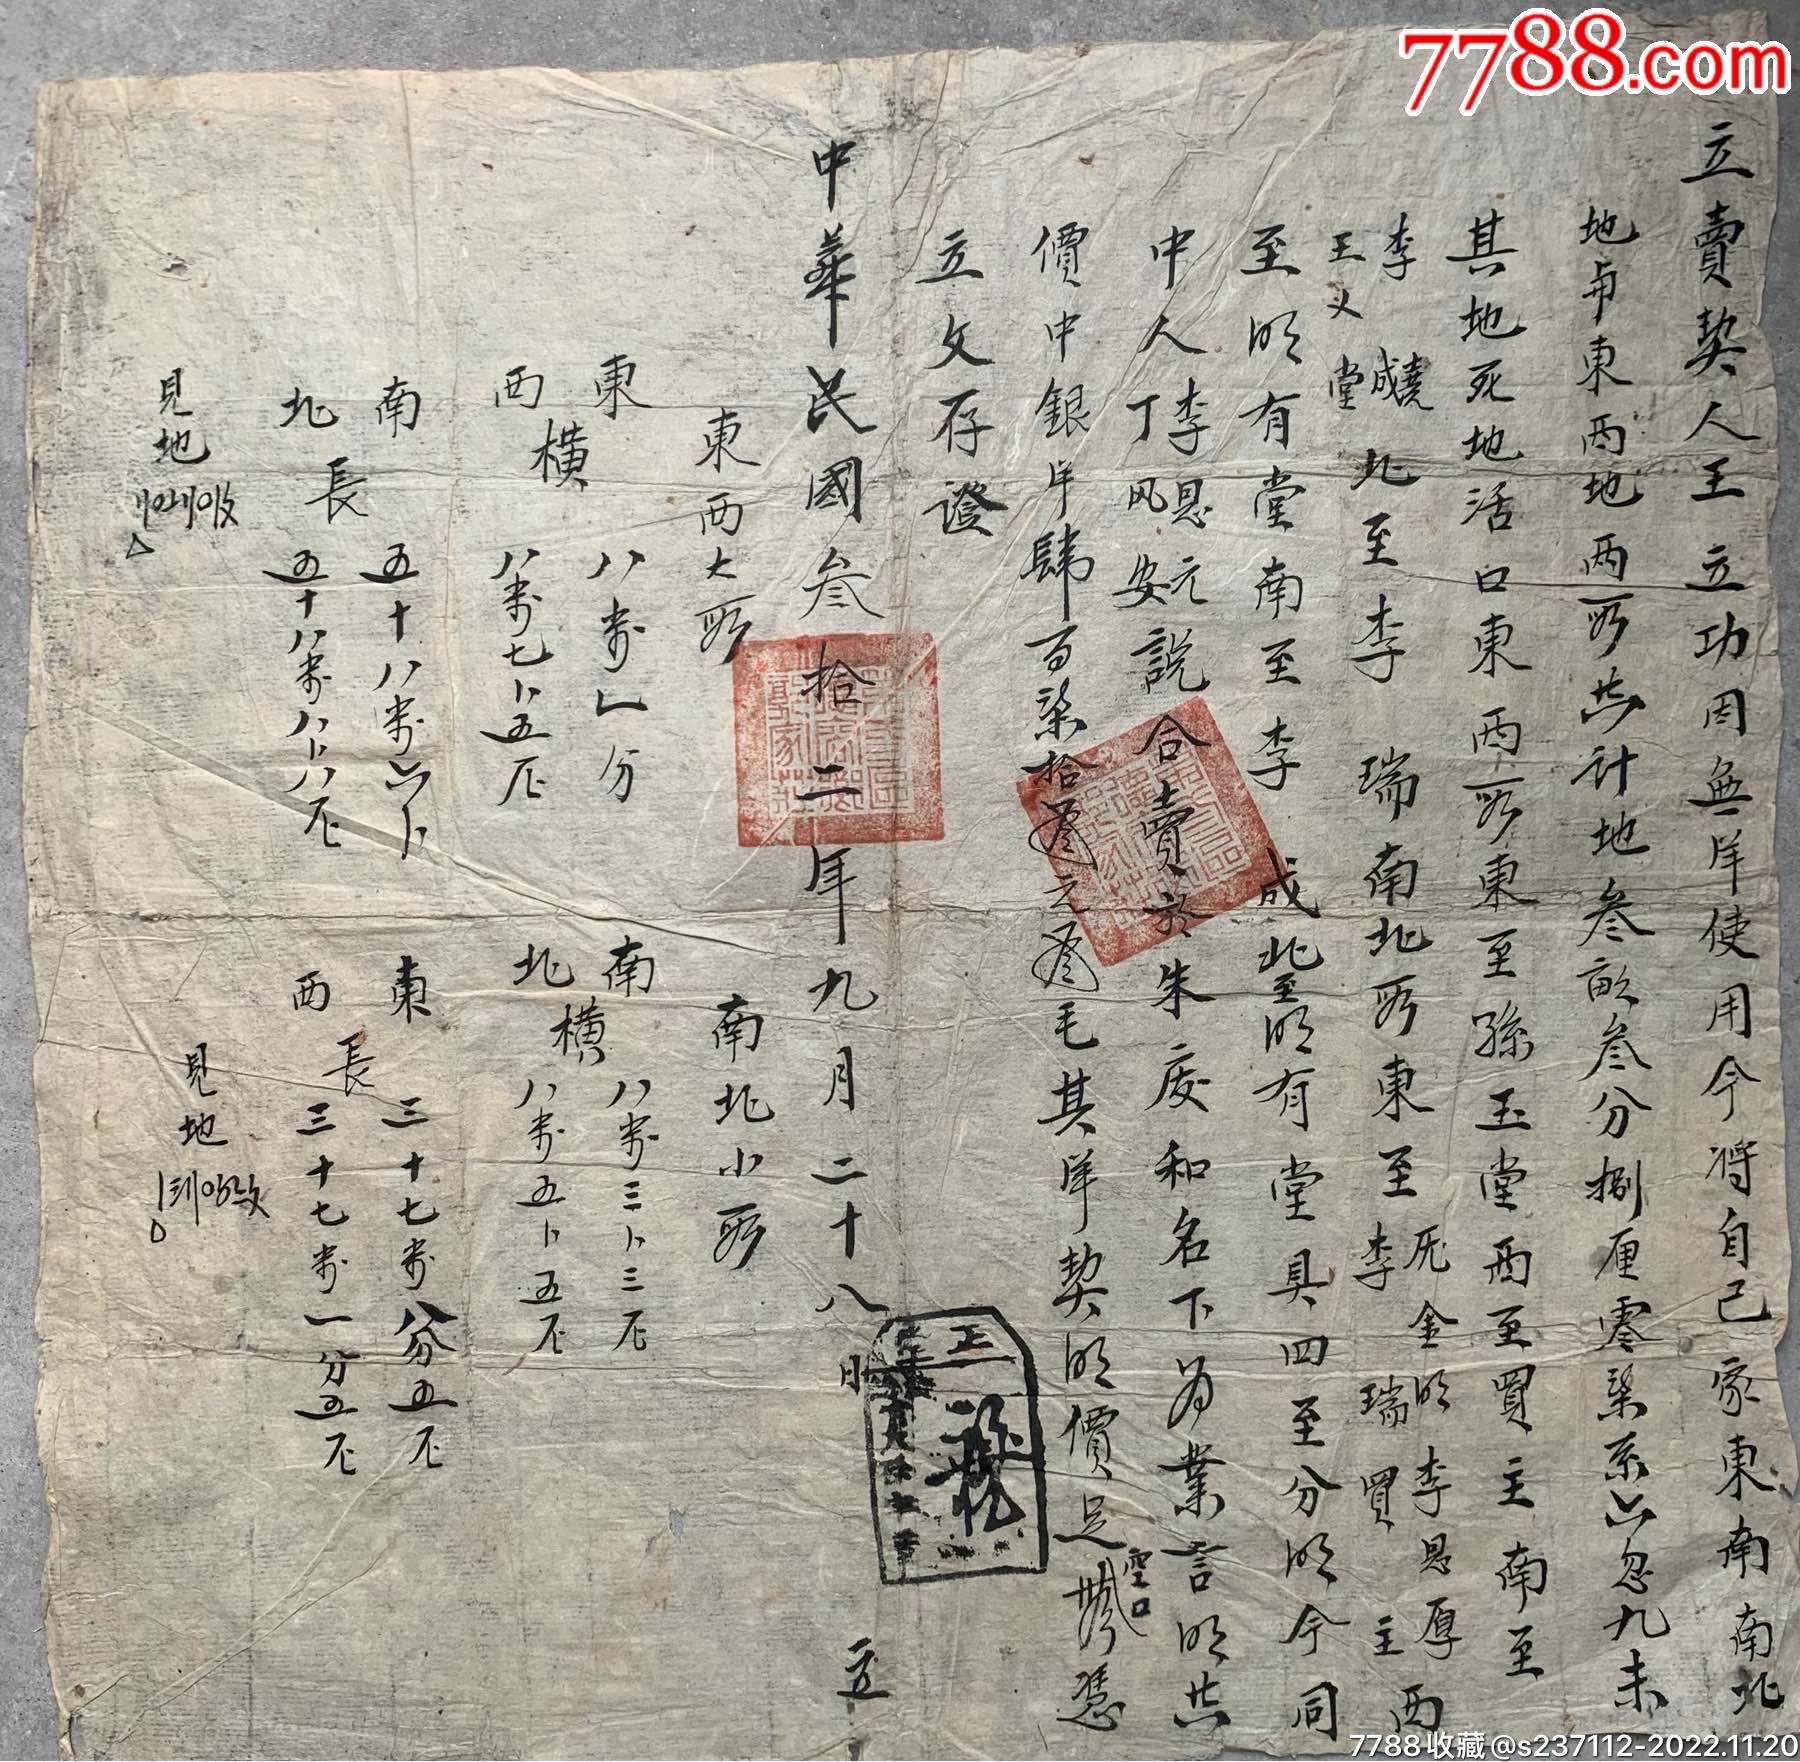 7788.com
立賣契人王立功因無洋使用今將自己家東南南北
地與東西地兩段共計地叁畝叁分捌厘零柒系六忽九未
其地死地活口東西段東至孫玉堂西至買主南至
李成堯 北至李瑞南北段東至李瑞買主西
王义堂
金明李恩厚
至明有堂南至李成北至明有堂具四至分明今同
中人李恩元說合賣於朱庆和名下為業言明共
丁风安
價中銀洋肆百柒拾叁元叁毛其洋契明價足
空口
憑
立文存證
中華民國叁拾二年九月二十八日 立
東西大段
東 八步乚分
橫
西 八步七卜五尺
南 五十八步六卜
長
北 五十八步八卜八尺
見地
南北小段
南 八步三卜三尺
橫
北 八步五卜五尺
東 三十七步八分五尺
長
西 三十七步一分五尺
見地
7788收藏@s237112-2022.11.20